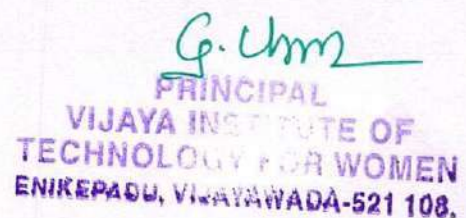 PRINCIPAL
VIJAYA INSTITUTE OF
TECHNOLOGY FOR WOMEN
ENIKEPADU, VIJAYAWADA-521 108.